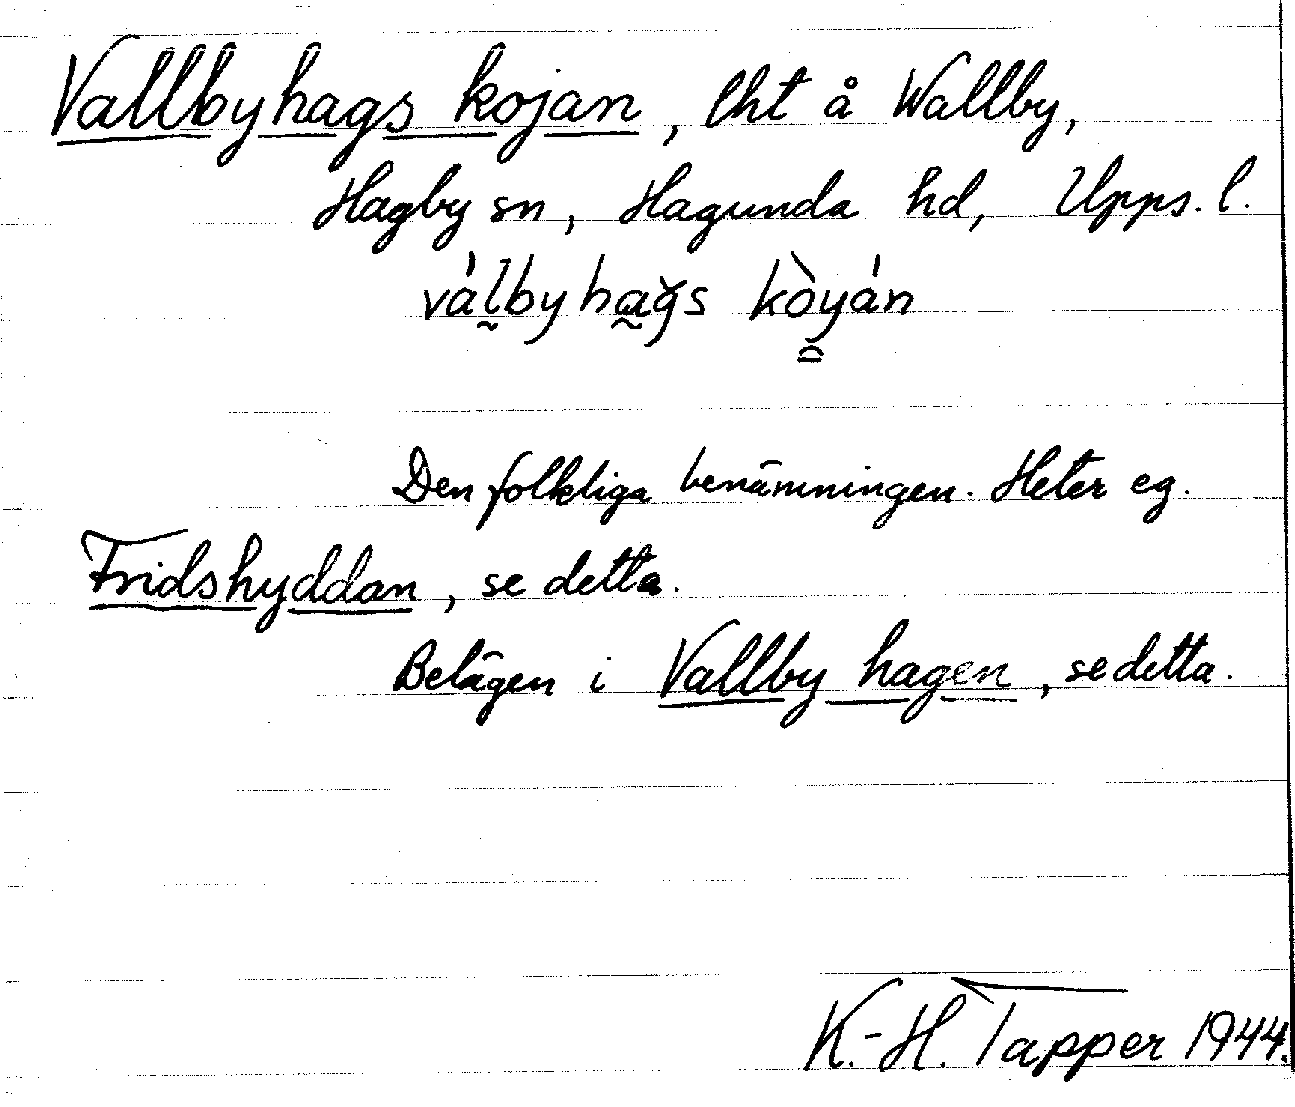 Vallbyhags kojan, lht å Wallby,
Hagby sn, Hagunda hd, Upps. l.
válbyhağs kòyán
Den folkliga benämningen. Heter eg.
Fridshyddan, se detta.
Belägen i Vallby hagen, se detta.
K.-H. Tapper 1944.